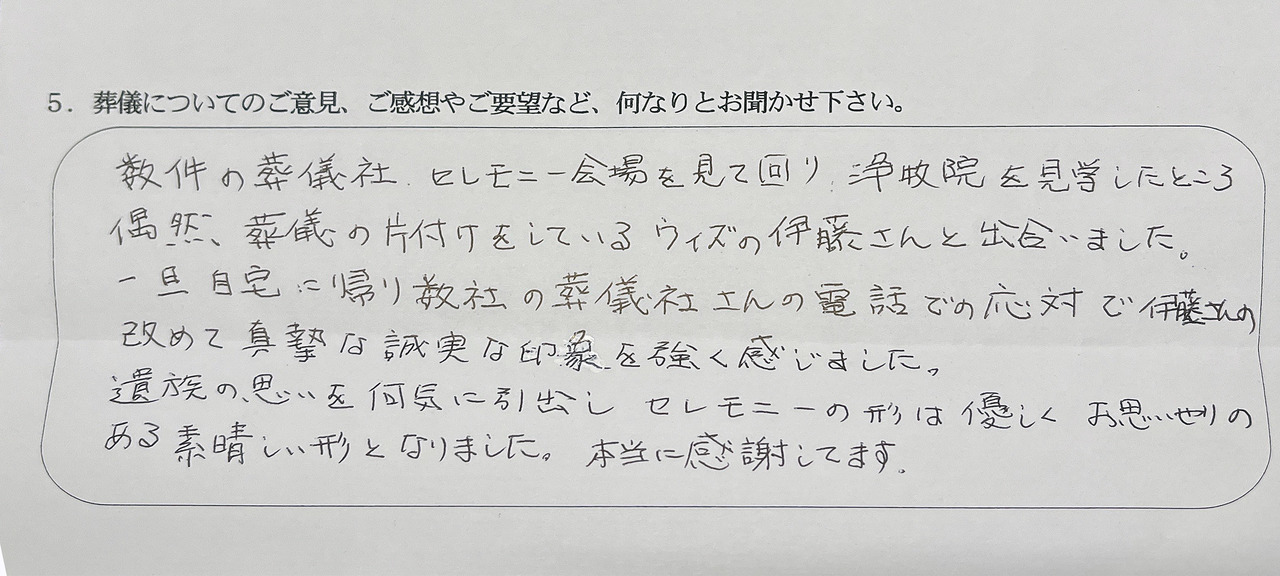 5．葬儀についてのご意見、ご感想やご要望など、何なりとお聞かせ下さい。
数件の葬儀社、セレモニー会場を見て回り、浄牧院を見学したところ
偶然、葬儀の片付けをしているウィズの伊藤さんと出合いました。
一旦自宅に帰り数社の葬儀社さんの電話での応対で伊藤さんの
改めて真摯な誠実な印象を強く感じました。
遺族の思いを何気に引出し セレモニーの形は優しく お思いやりの
ある素晴しい形となりました。本当に感謝してます。